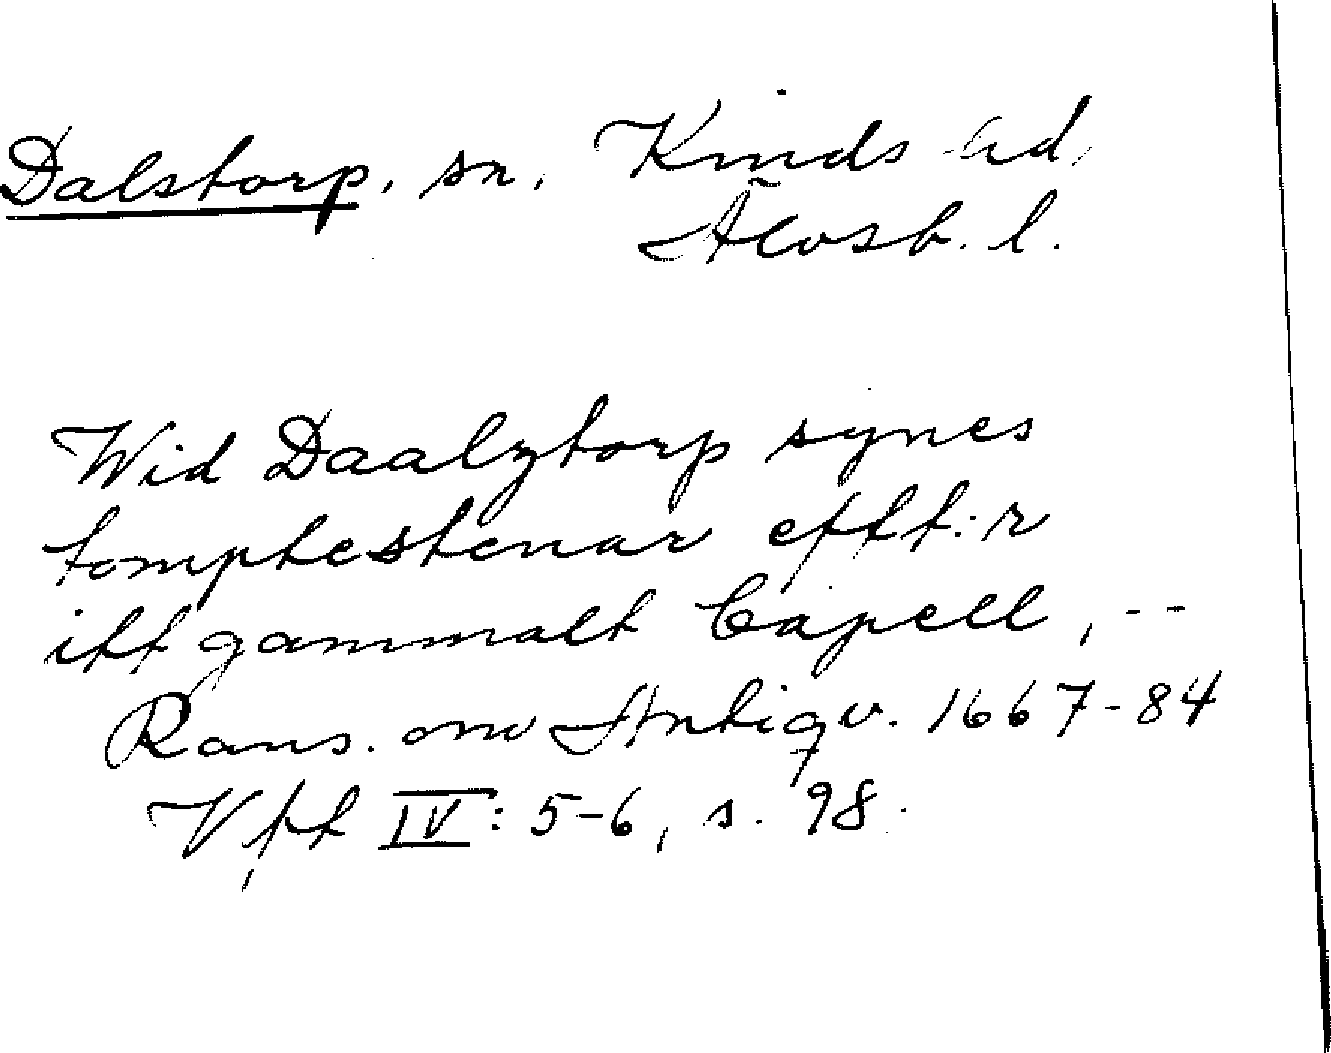 Dalstorp, sn, Kinds hd,
Älvsb. l.
Wid Daalztorp synes
tomptestenar efft:r
itt gammalt Capell, --
Rans. om Antiqv. 1667-84
Vfft IV: 5-6, s. 98.